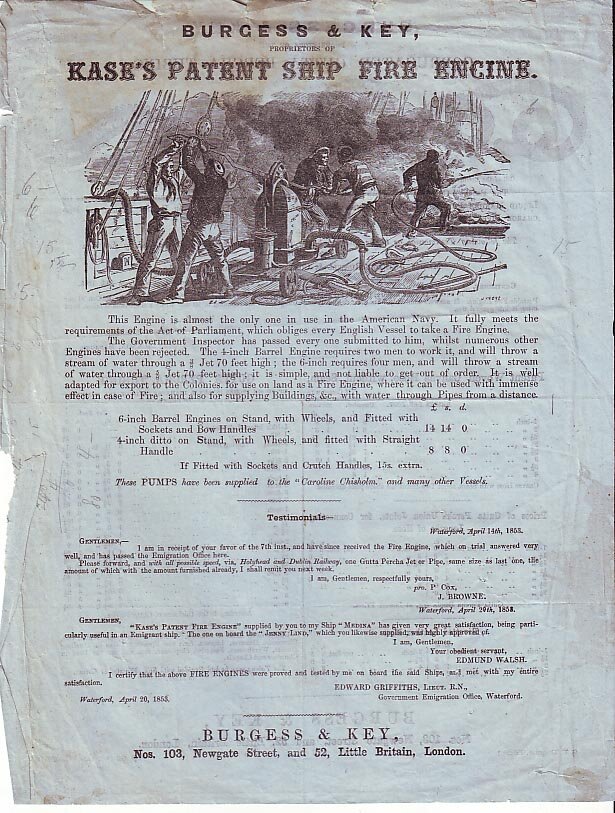 BURGESS & KEY,
PROPRIETORS OF
KASE'S PATENT SHIP FIRE ENGINE.
This Engine is almost the only one in use in the American Navy. It fully meets the
requirements of the Act of Parliament, which obliges every English Vessel to take a Fire Engine.
The Government Inspector has passed every one submitted to him, whilst numerous other
Engines have been rejected. The 4-inch Barrel Engine requires two men to work it, and will throw a
stream of water through a Jet 70 feet high; the 6-inch requires four men, and will throw a stream
of water through a Jet 70 feet high; it is simple, and not liable to get out of order. It is well
adapted for export to the Colonies, for use on land as a Fire Engine, where it can be used with immense
effect in case of Fire; and also for supplying Buildings, &c., with water through Pipes from a distance.
£ s. d.
6-inch Barrel Engines on Stand, with Wheels, and Fitted with
Sockets and Bow Handles 14 14 0
4-inch ditto on Stand, with Wheels, and fitted with Straight
Handle 8 8 0
If Fitted with Sockets and Crutch Handles, 15s. extra.
These PUMPS have been supplied to the "Caroline Chisholm," and many other Vessels.
Testimonials—
Waterford, April 14th, 1853.
GENTLEMEN,—
I am in receipt of your favor of the 7th inst., and have since received the Fire Engine, which on trial answered very
well, and has passed the Emigration Office here.
Please forward, and with all possible speed, via, Holyhead and Dublin Railway, one Gutta Percha Jet or Pipe, same size as last one, the
amount of which with the amount furnished already, I shall remit you next week.
I am, Gentlemen, respectfully yours,
pro. P Cox,
J. BROWNE.
Waterford, April 20th, 1853.
GENTLEMEN,
"KASE'S PATENT FIRE ENGINE" supplied by you to my Ship "MEDINA" has given very great satisfaction, being parti-
cularly useful in an Emigrant ship. The one on board the "JENNY LIND," which you likewise supplied, was highly approved of.
I am, Gentlemen,
Your obedient servant,
EDMUND WALSH.
I certify that the above FIRE ENGINES were proved and tested by me on board the said Ships, and met with my entire
satisfaction.
EDWARD GRIFFITHS, LIEUT. R.N.,
Waterford, April 20, 1853. Government Emigration Office, Waterford.
BURGESS & KEY,
Nos. 103, Newgate Street, and 52, Little Britain, London.